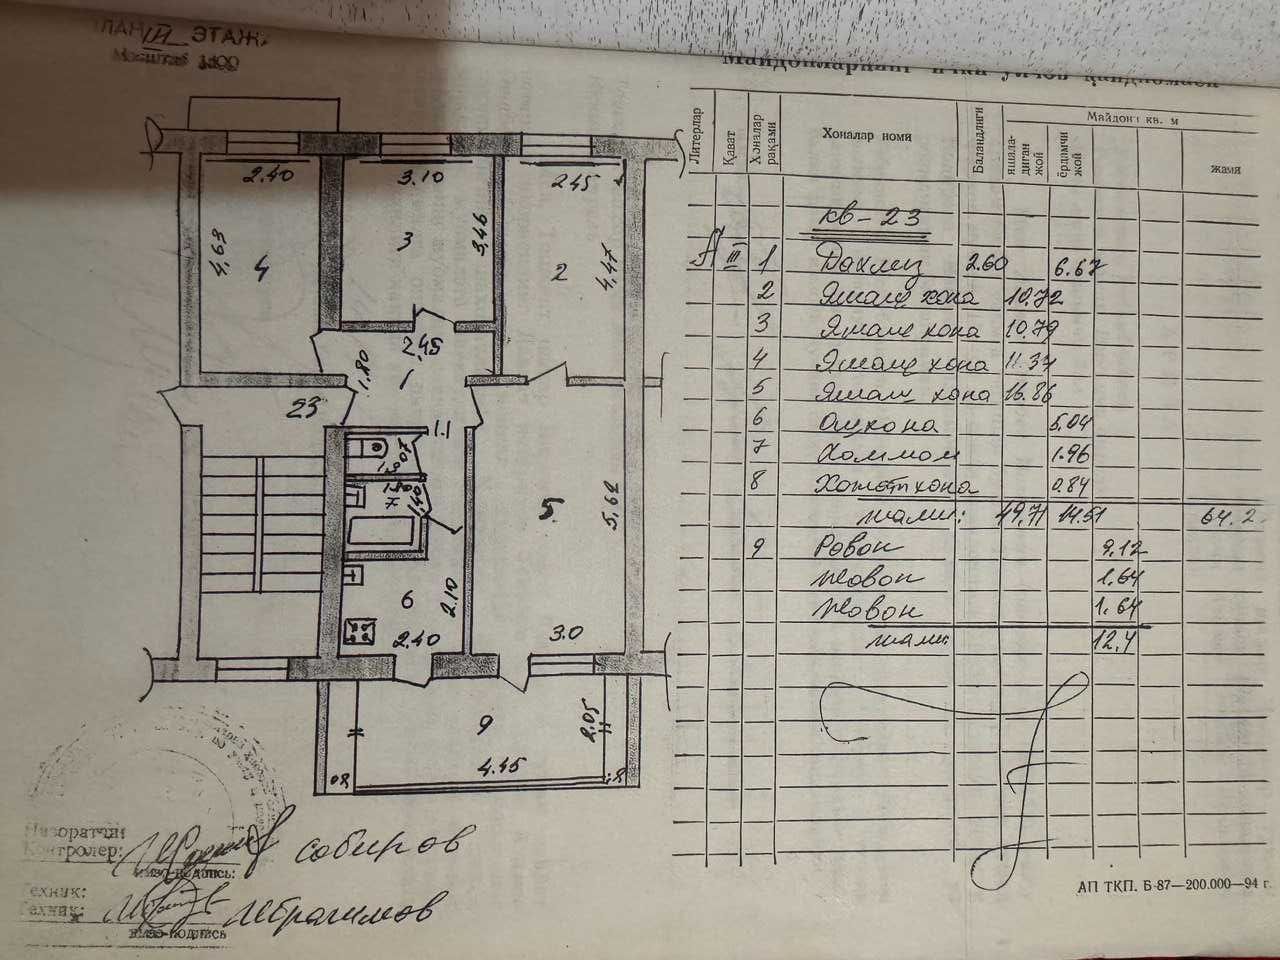 ПЛАН III ЭТАЖ
Масштаб 1:100
2.40
3.10
2.45
4,63
4
3
3,46
2
4,47
2,45
1,80
1
23
1.1
1.40
7
5
5,62
6
2.10
2.40
3.0
9
2.05
4.45
Назоратчи:
Контролер:
Собиров
имзо-подпись:
Техник:
Техник:
Ибрагимов
имзо-подпись
Майдонларнинг ички ўлчов қайдномаси
Литерлар
Қават
Хоналар рақами
Хоналар номи
Баландлиги
Майдони кв. м
яшала-диган жой
ёрдамчи жой
жами
кв-23
А III 1 Дахлиз 2.60 6.67
2 Яшаш хона 10.72
3 Яшаш хона 10.79
4 Яшаш хона 11.34
5 Яшаш хона 16.86
6 Ошхона 5.04
7 Хаммом 1.96
8 Хожатхона 0.84
жами: 49,71 14.51 64.2
9 Равон 9.12
Жавон 1.64
Жавон 1.64
жами 12,4
АП ТКП. Б-87—200.000—94 г.